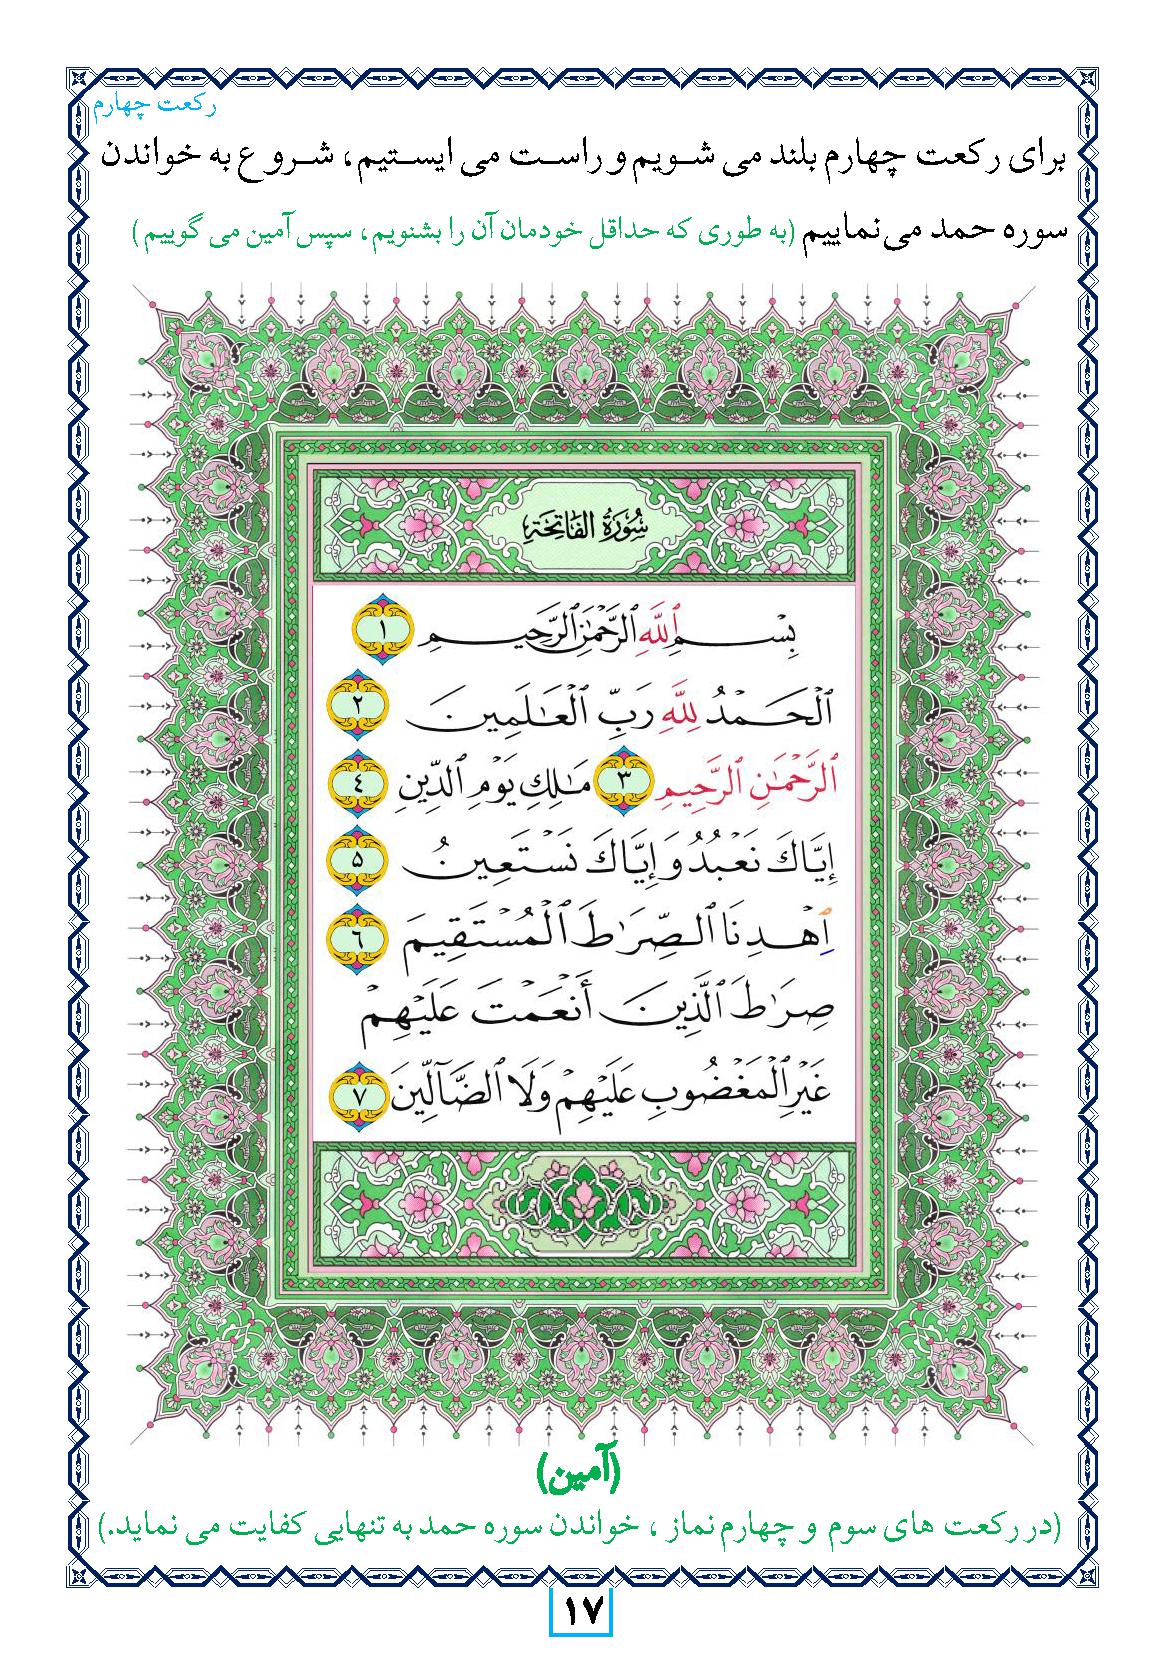 رکعت چهارم
برای رکعت چهارم بلند می شویم و راست می ایستیم، شروع به خواندن
سوره حمد می‌نماییم (به طوری که حداقل خودمان آن را بشنویم، سپس آمین می گوییم)
سُورَةُ الفَاتِحَةِ
بِسْمِ ٱللَّهِ ٱلرَّحْمَٰنِ ٱلرَّحِيمِ ١
ٱلْحَمْدُ لِلَّهِ رَبِّ ٱلْعَٰلَمِينَ ٢
ٱلرَّحْمَٰنِ ٱلرَّحِيمِ ٣ مَٰلِكِ يَوْمِ ٱلدِّينِ ٤
إِيَّاكَ نَعْبُدُ وَإِيَّاكَ نَسْتَعِينُ ۵
ٱِهْدِنَا ٱلصِّرَٰطَ ٱلْمُسْتَقِيمَ ٦
صِرَٰطَ ٱلَّذِينَ أَنْعَمْتَ عَلَيْهِمْ
غَيْرِ ٱلْمَغْضُوبِ عَلَيْهِمْ وَلَا ٱلضَّآلِّينَ ٧
(آمین)
(در رکعت های سوم و چهارم نماز ، خواندن سوره حمد به تنهایی کفایت می نماید.)
۱۷